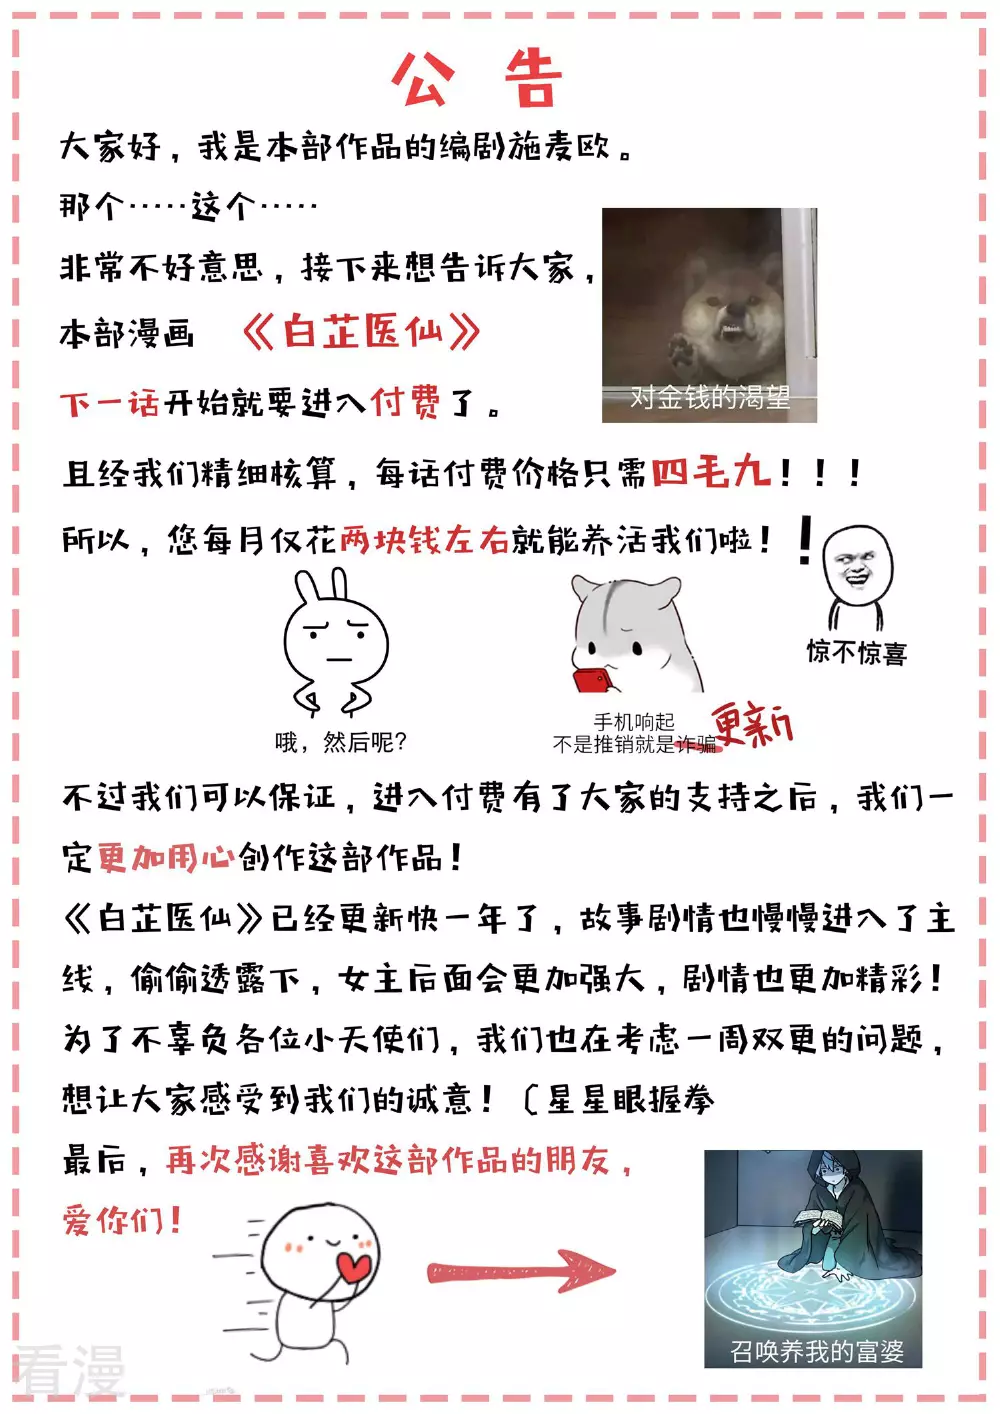 公告
大家好，我是本部作品的编剧施麦欧。
那个……这个……
非常不好意思，接下来想告诉大家，
本部漫画 《白芷医仙》
下一话开始就要进入付费了。
对金钱的渴望
且经我们精细核算，每话付费价格只需四毛九！！！
所以，您每月仅花两块钱左右就能养活我们啦！！
惊不惊喜
哦，然后呢？
手机响起
不是推销就是诈骗更新
不过我们可以保证，进入付费有了大家的支持之后，我们一
定更加用心创作这部作品！
《白芷医仙》已经更新快一年了，故事剧情也慢慢进入了主
线，偷偷透露下，女主后面会更加强大，剧情也更加精彩！
为了不辜负各位小天使们，我们也在考虑一周双更的问题，
想让大家感受到我们的诚意！〔星星眼握拳
最后，再次感谢喜欢这部作品的朋友，
爱你们！
召唤养我的富婆
看漫